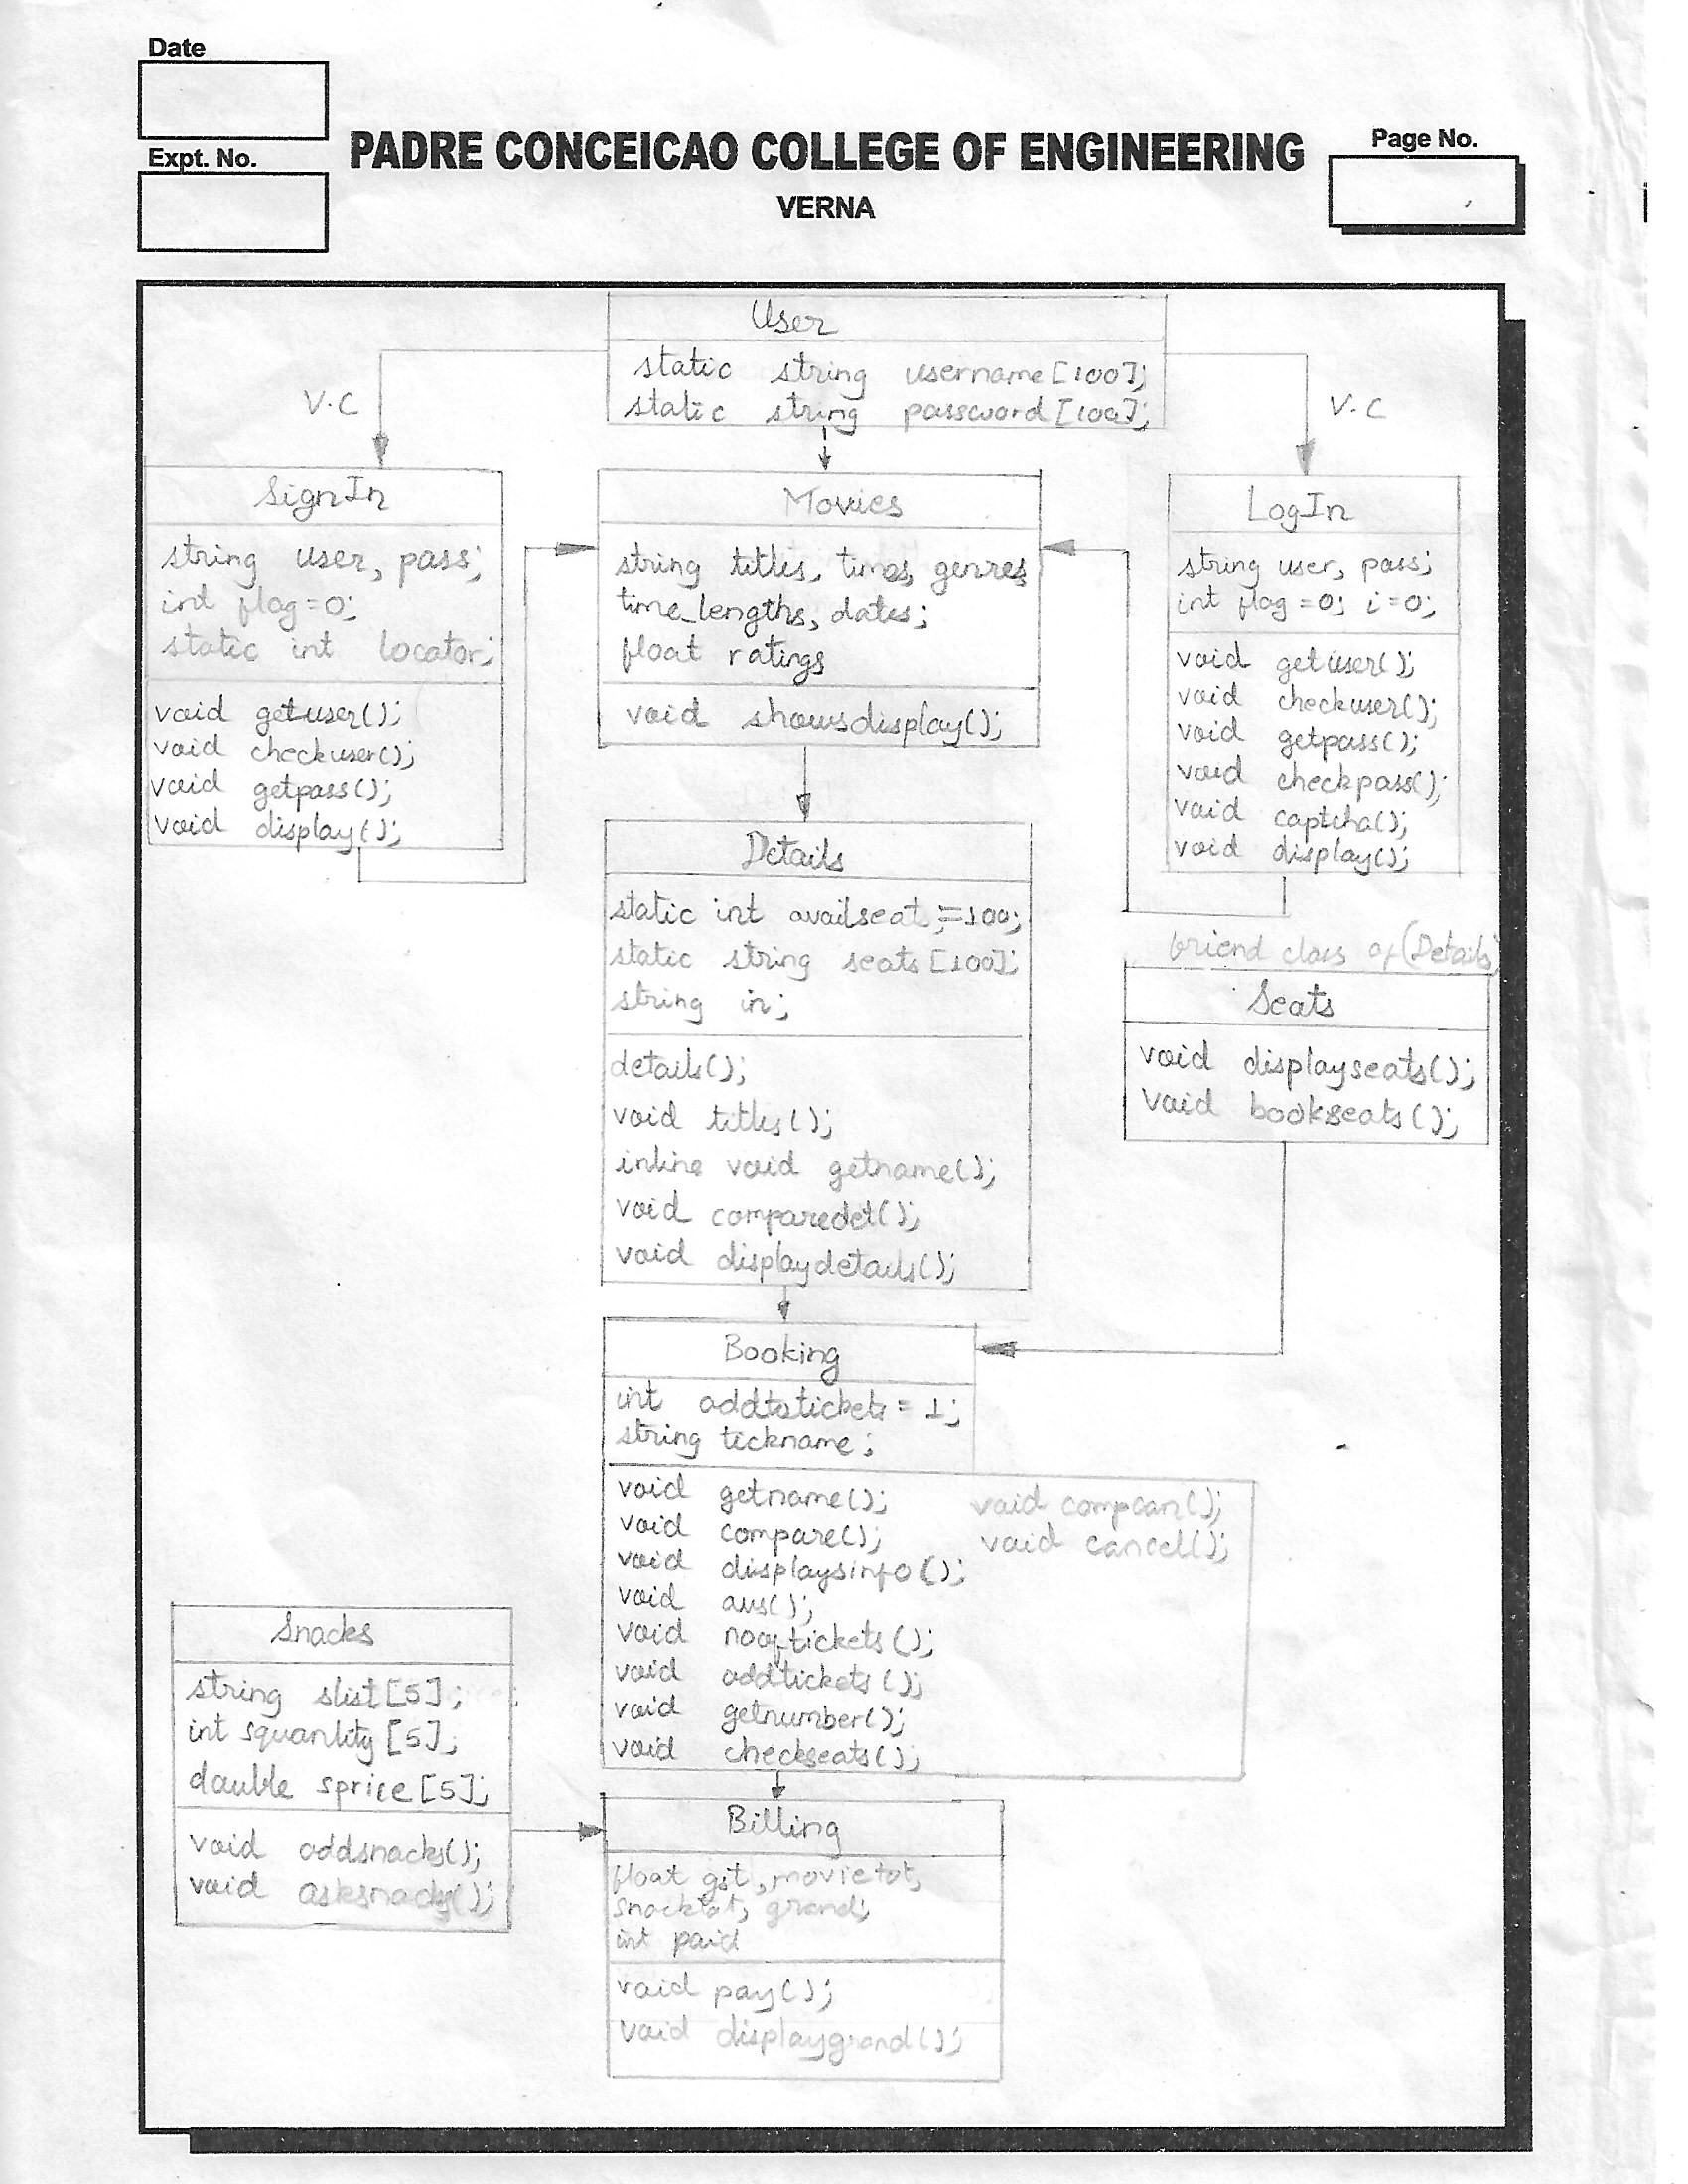 Date
Expt. No.
PADRE CONCEICAO COLLEGE OF ENGINEERING
VERNA
Page No.
User
static string username[100];
static string password[100];
V.C
V.C
SignIn
string user, pass;
int flag=0;
static int locator;
void getuser();
void checkuser();
void getpass();
void display();
Movies
string titles, times, genres
time_lengths, dates;
float ratings
void showsdisplay();
LogIn
string user, pass;
int flag=0; i=0;
void getuser();
void checkuser();
void getpass();
void checkpass();
void captcha();
void display();
Details
static int availseat,=100;
static string seats[100];
string in;
details();
void titles();
inline void getname();
void comparedet();
void displaydetails();
friend class of(Details)
Seats
void displayseats();
void bookseats();
Booking
int addtotickets = 1;
string tickname;
void getname(); void compcan();
void compare(); void cancel();
void displaysinfo();
void
void nooftickets();
void addtickets();
void getnumber();
void checkseats();
Snacks
string slist[5];
int squantity[5];
double sprice[5];
void addsnacks();
void asksnacks();
Billing
float gst, movietot,
snacktot, grand;
int paid
void pay();
void displaygrand();